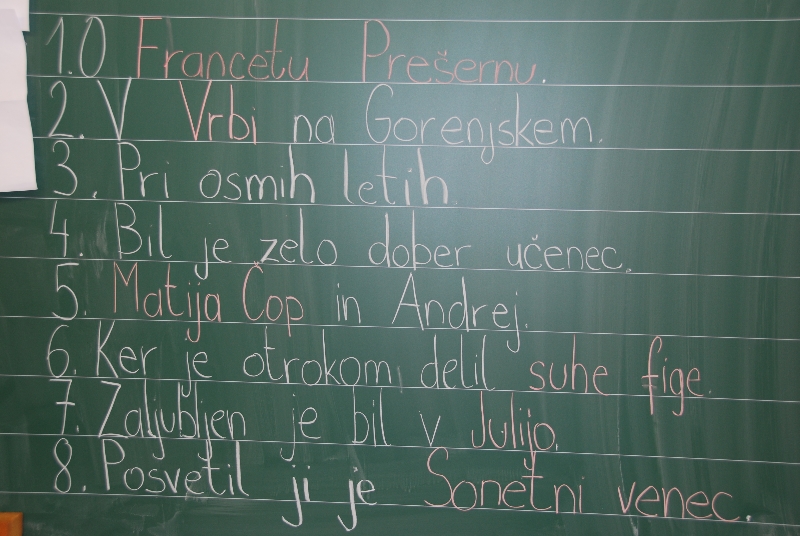 1. O Francetu Prešernu.
2. V Vrbi na Gorenjskem.
3. Pri osmih letih.
4. Bil je zelo dober učenec.
5. Matija Čop in Andrej.
6. Ker je otrokom delil suhe fige.
7. Zaljubljen je bil v Julijo.
8. Posvetil ji je Sonetni venec.